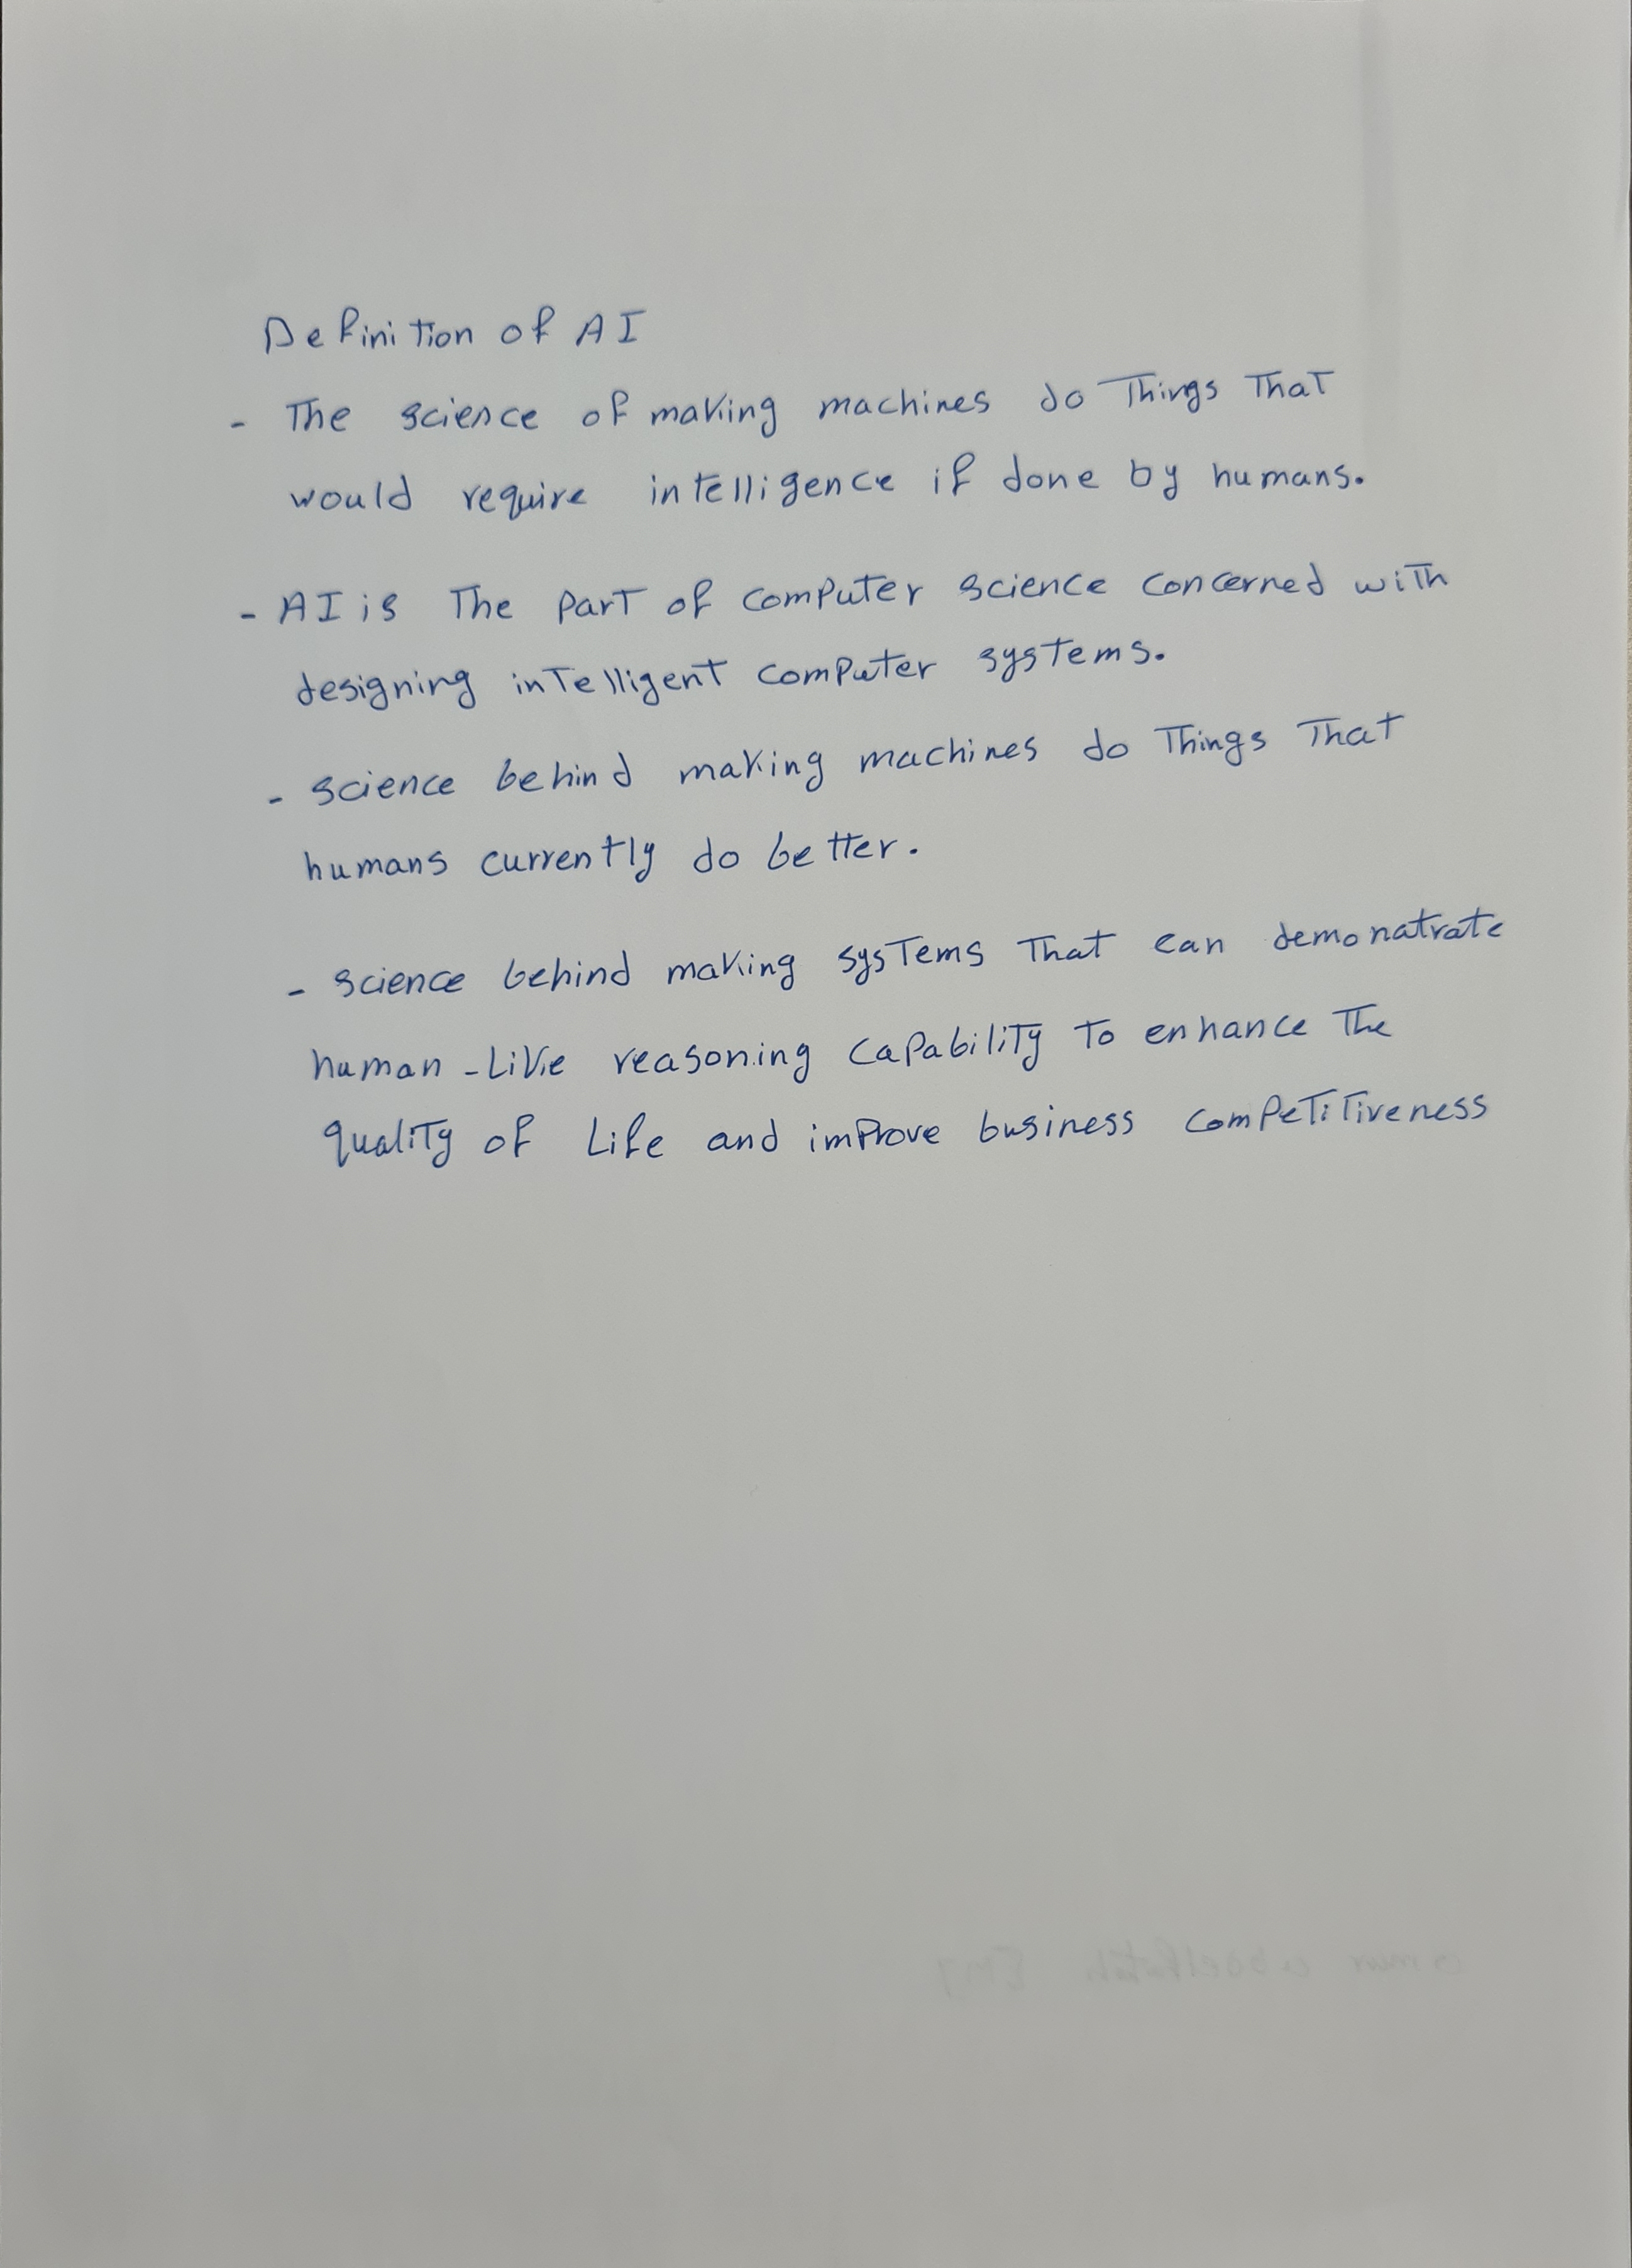 Definition of AI
- The science of making machines do Things That
would require intelligence if done by humans.
- AI is The part of computer science concerned with
designing intelligent computer systems.
- science behind making machines do Things That
humans currently do better.
- science behind making systems That can demonatrate
human-Like reasoning capability To enhance The
quality of Life and improve business competitiveness